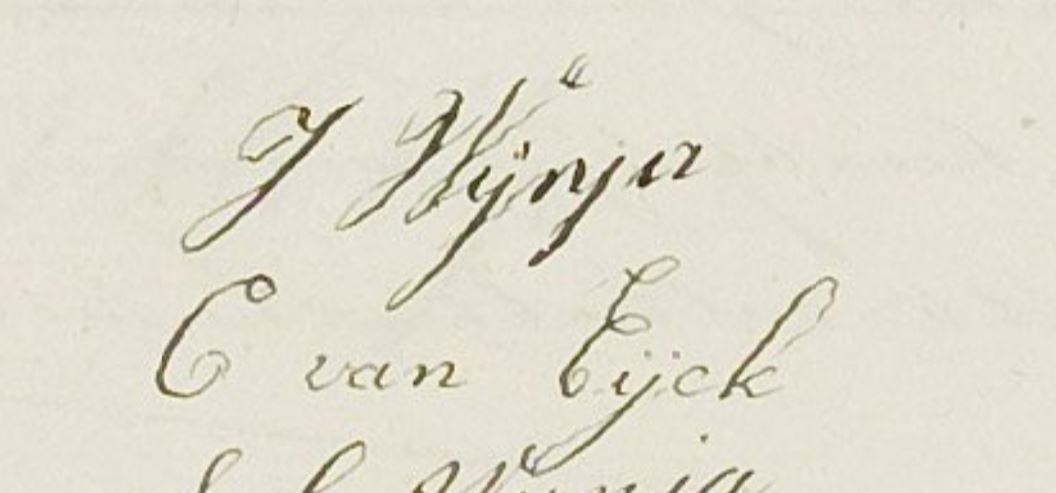 J Wijnja
C van Eijck